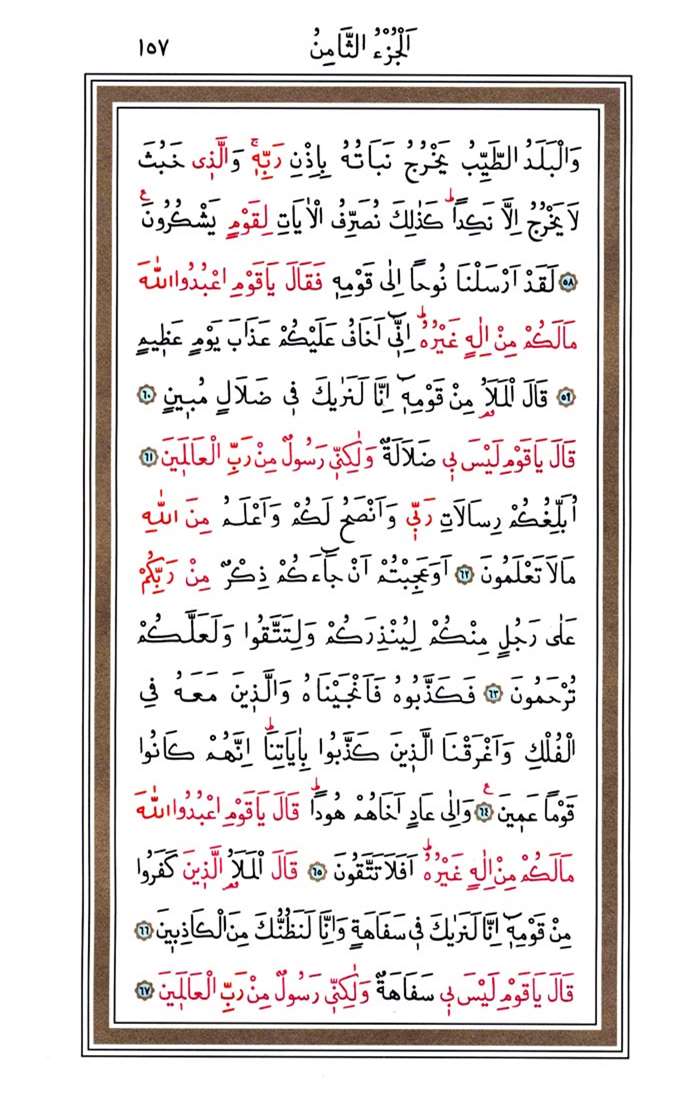 اَلْجُزْءُ الثَّامِنُ ١٥٧
وَالْبَلَدُ الطَّيِّبُ يَخْرُجُ نَبَاتُهُ بِاِذْنِ رَبِّهٖۚ وَالَّذٖى خَبُثَ
لَا يَخْرُجُ اِلَّا نَكِداًؕ كَذٰلِكَ نُصَرِّفُ الْاٰيَاتِ لِقَوْمٍ يَشْكُرُونَࣖ
﴿٥٨﴾ لَقَدْ اَرْسَلْنَا نُوحاً اِلٰى قَوْمِهٖ فَقَالَ يَاقَوْمِ اعْبُدُوا اللّٰهَ
مَالَكُمْ مِنْ اِلٰهٍ غَيْرُهُؕ اِنّٖٓى اَخَافُ عَلَيْكُمْ عَذَابَ يَوْمٍ عَظٖيمٍ
﴿٥٩﴾ قَالَ الْمَلَاُ مِنْ قَوْمِهٖٓ اِنَّا لَنَرٰيكَ فٖى ضَلَالٍ مُبٖينٍ ﴿٦٠﴾
قَالَ يَاقَوْمِ لَيْسَ بٖى ضَلَالَةٌ وَلٰكِنّٖى رَسُولٌ مِنْ رَبِّ الْعَالَمٖينَ ﴿٦١﴾
اُبَلِّغُكُمْ رِسَالَاتِ رَبّٖى وَاَنْصَحُ لَكُمْ وَاَعْلَمُ مِنَ اللّٰهِ
مَالَا تَعْلَمُونَ ﴿٦٢﴾ اَوَعَجِبْتُمْ اَنْ جَٓاءَكُمْ ذِكْرٌ مِنْ رَبِّكُمْ
عَلٰى رَجُلٍ مِنْكُمْ لِيُنْذِرَكُمْ وَلِتَتَّقُوا وَلَعَلَّكُمْ
تُرْحَمُونَ ﴿٦٣﴾ فَكَذَّبُوهُ فَاَنْجَيْنَاهُ وَالَّذٖينَ مَعَهُ فِى
الْفُلْكِ وَاَغْرَقْنَا الَّذٖينَ كَذَّبُوا بِاٰيَاتِنَاؕ اِنَّهُمْ كَانُوا
قَوْماً عَمٖينَࣖ ﴿٦٤﴾ وَاِلٰى عَادٍ اَخَاهُمْ هُوداًؕ قَالَ يَاقَوْمِ اعْبُدُوا اللّٰهَ
مَالَكُمْ مِنْ اِلٰهٍ غَيْرُهُؕ اَفَلَا تَتَّقُونَ ﴿٦٥﴾ قَالَ الْمَلَاُ الَّذٖينَ كَفَرُوا
مِنْ قَوْمِهٖٓ اِنَّا لَنَرٰيكَ فٖى سَفَاهَةٍ وَاِنَّا لَنَظُنُّكَ مِنَ الْكَاذِبٖينَ ﴿٦٦﴾
قَالَ يَاقَوْمِ لَيْسَ بٖى سَفَاهَةٌ وَلٰكِنّٖى رَسُولٌ مِنْ رَبِّ الْعَالَمٖينَ ﴿٦٧﴾